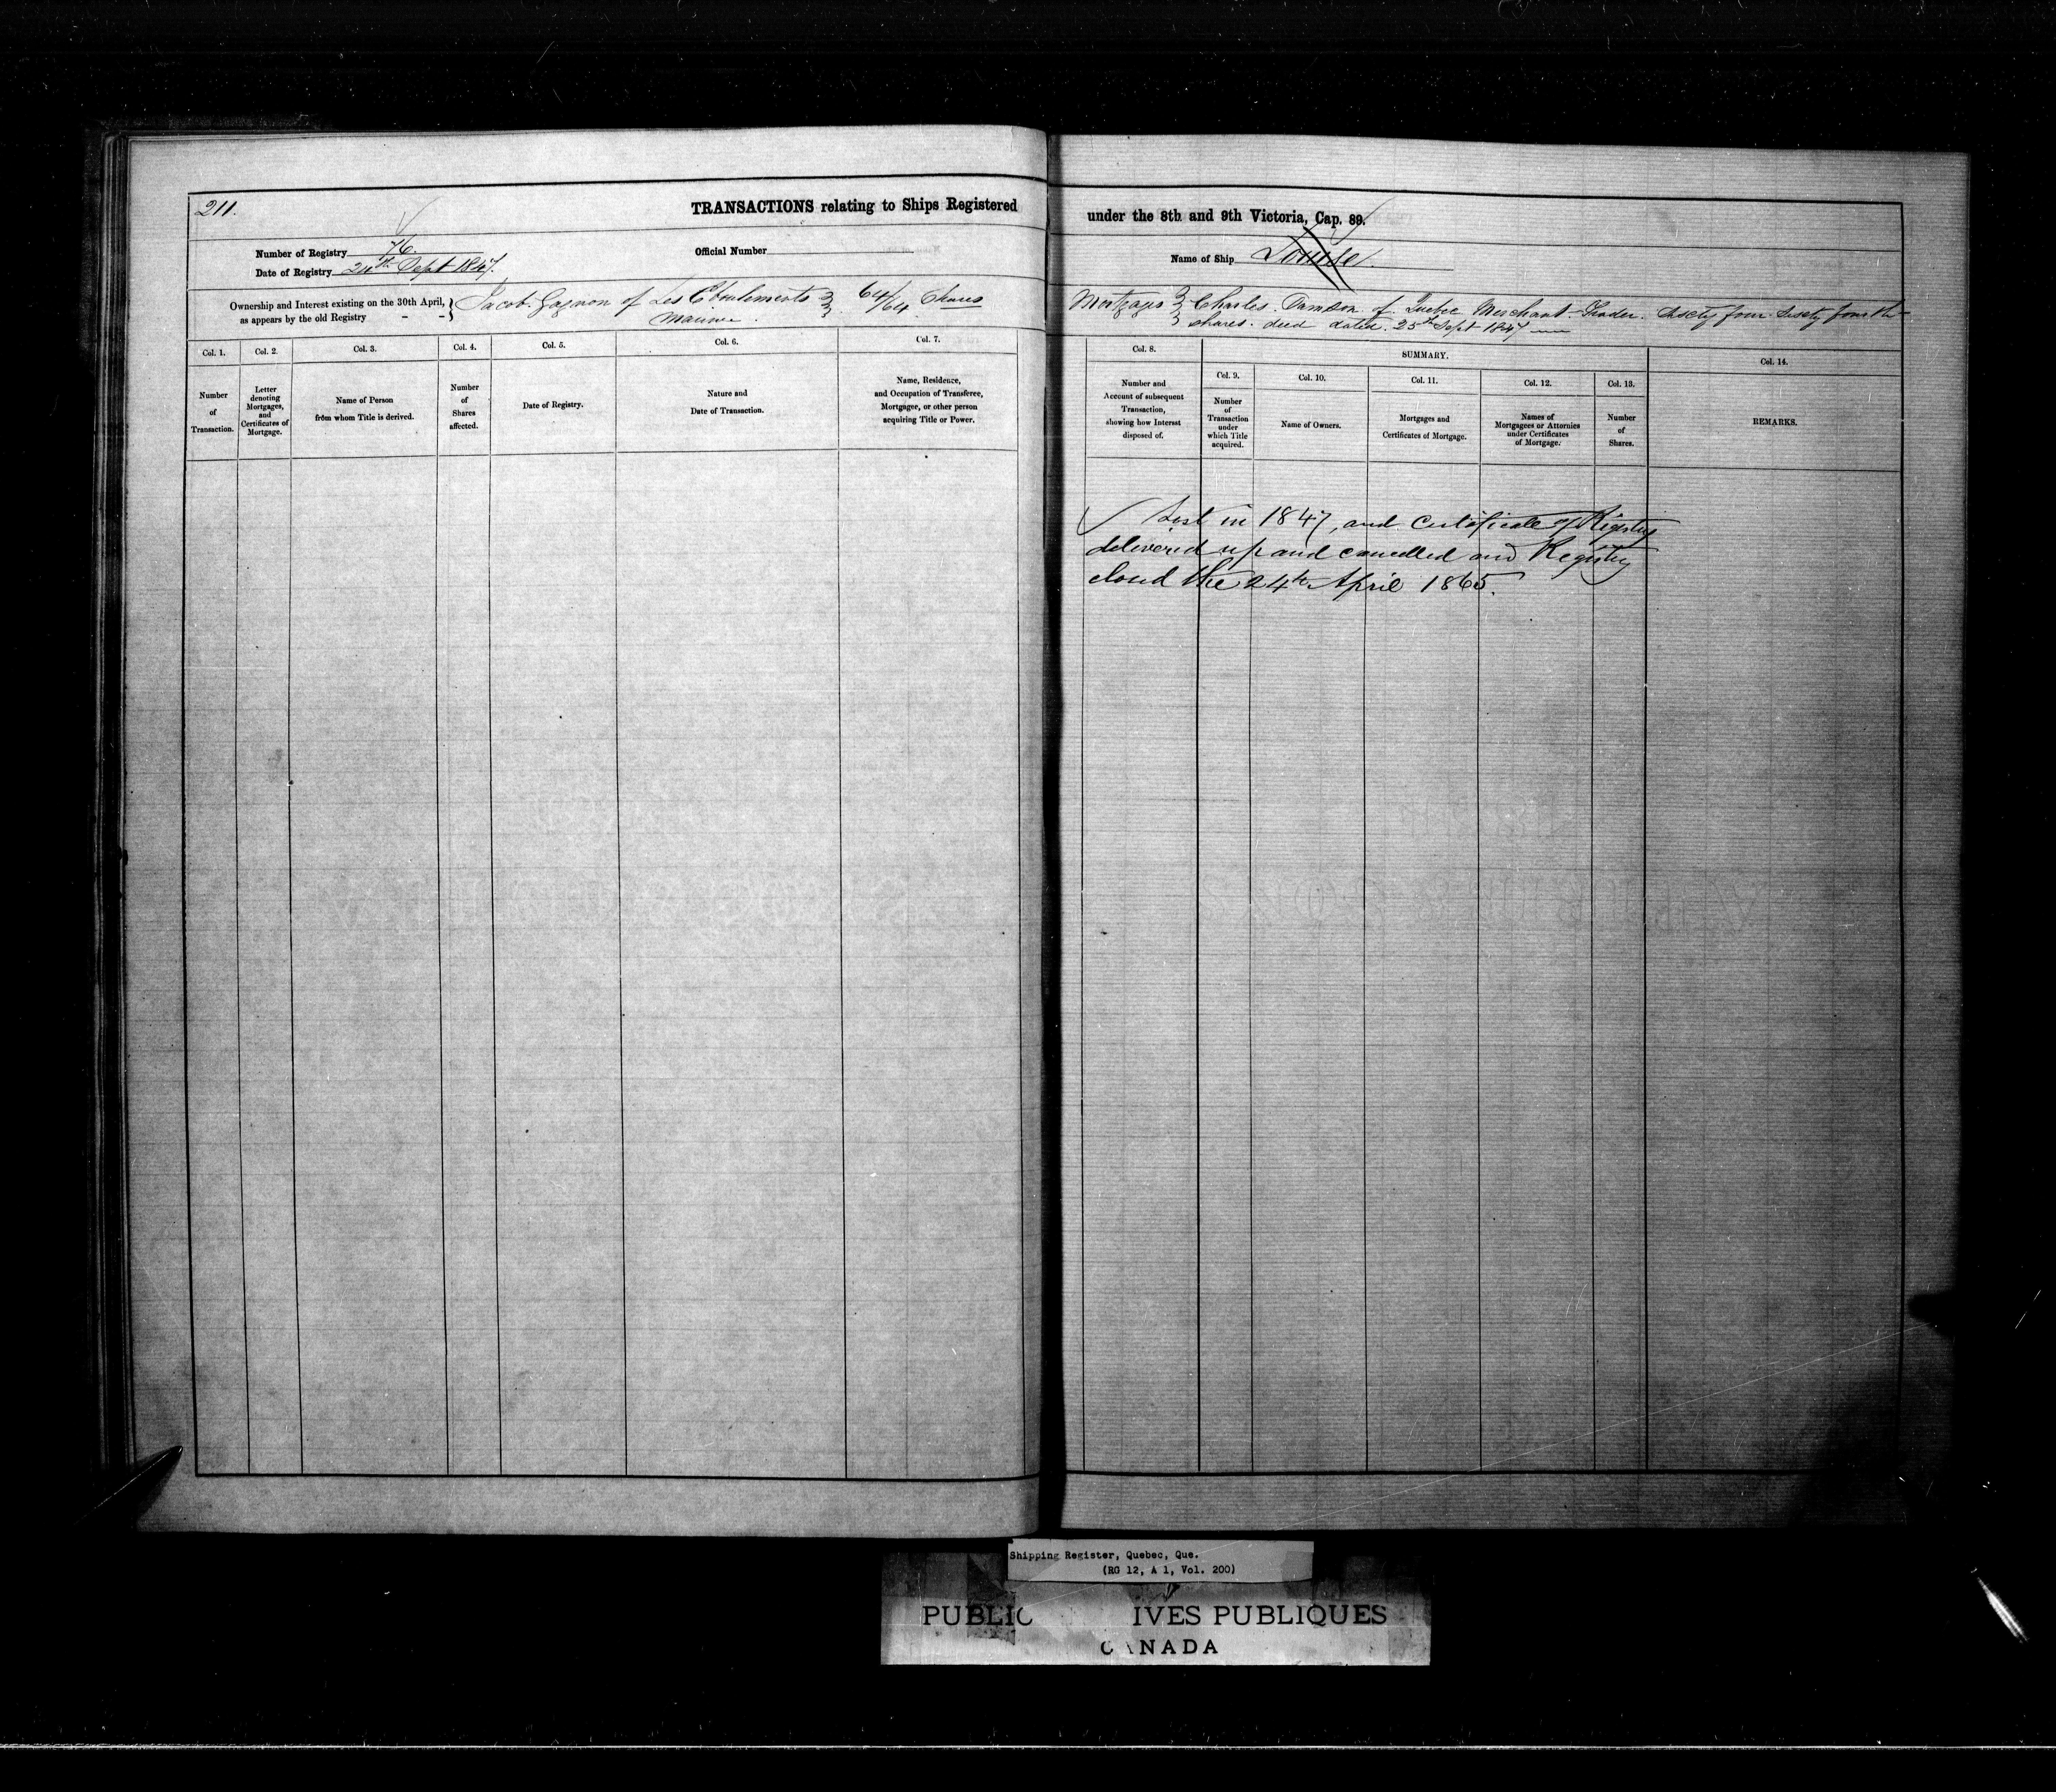 211.
TRANSACTIONS relating to Ships Registered under the 8th and 9th Victoria, Cap. 89.
Number of Registry 76.
Official Number
Name of Ship Louise.
Date of Registry 24th Sept 1847.
Ownership and Interest existing on the 30th April, as appears by the old Registry - -
Jacob Gagnon of Les Eboulements 64/64 Shares
Mariner.
Mortgages Charles Tamson of Quebec Merchant Trader. Sixty four Sixty fourth
shares. deed dated. 25th Sept 1847
Col. 1.
Number of Transaction.
Col. 2
Letter denoting Mortgages, and Certificates of Mortgage.
Col. 3.
Name of Person from whom Title is derived.
Col. 4.
Number of Shares affected.
Col. 5.
Date of Registry.
Col. 6.
Nature and Date of Transaction.
Col. 7.
Name, Residence, and Occupation of Transferee, Mortgagee, or other person acquiring Title or Power.
Col. 8.
Number and Account of subsequent Transaction, showing how Interest disposed of.
SUMMARY.
Col. 9.
Number of Transaction under which Title acquired.
Col. 10.
Name of Owners.
Col. 11.
Mortgages and Certificates of Mortgage.
Col. 12.
Names of Mortgagees or Attornies under Certificates of Mortgage.
Col. 13.
Number of Shares.
Col. 14.
REMARKS.
Lost in 1847, and Certificate of Registry
delivered up and cancelled and Registry
closed the 24th April 1865.
Shipping Register, Quebec, Que.
(RG 12, A 1, Vol. 200)
PUBLIC IVES PUBLIQUES
CANADA